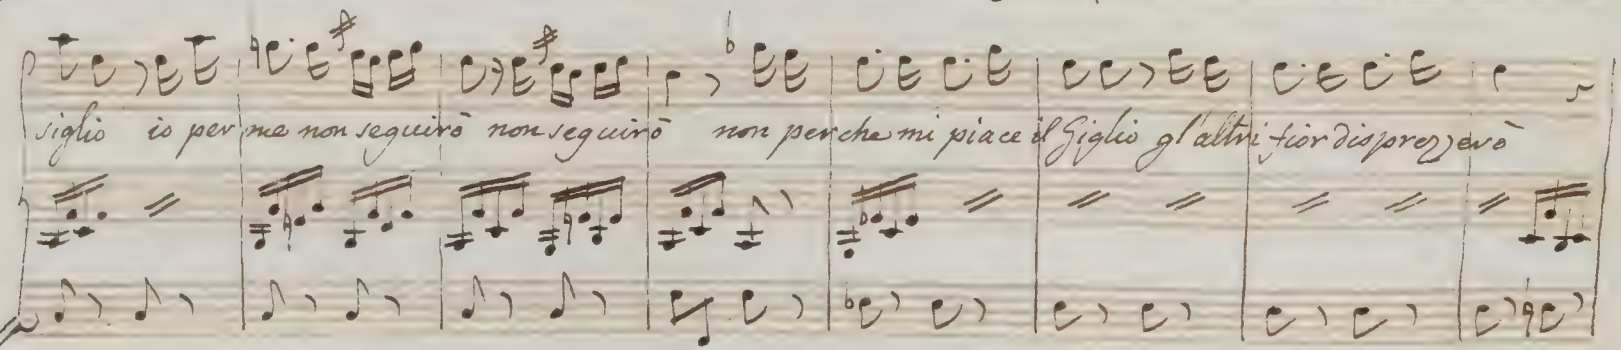 siglio io per me non seguirò non seguirò non perche mi piace il Giglio gl'altri fior disprezzerò